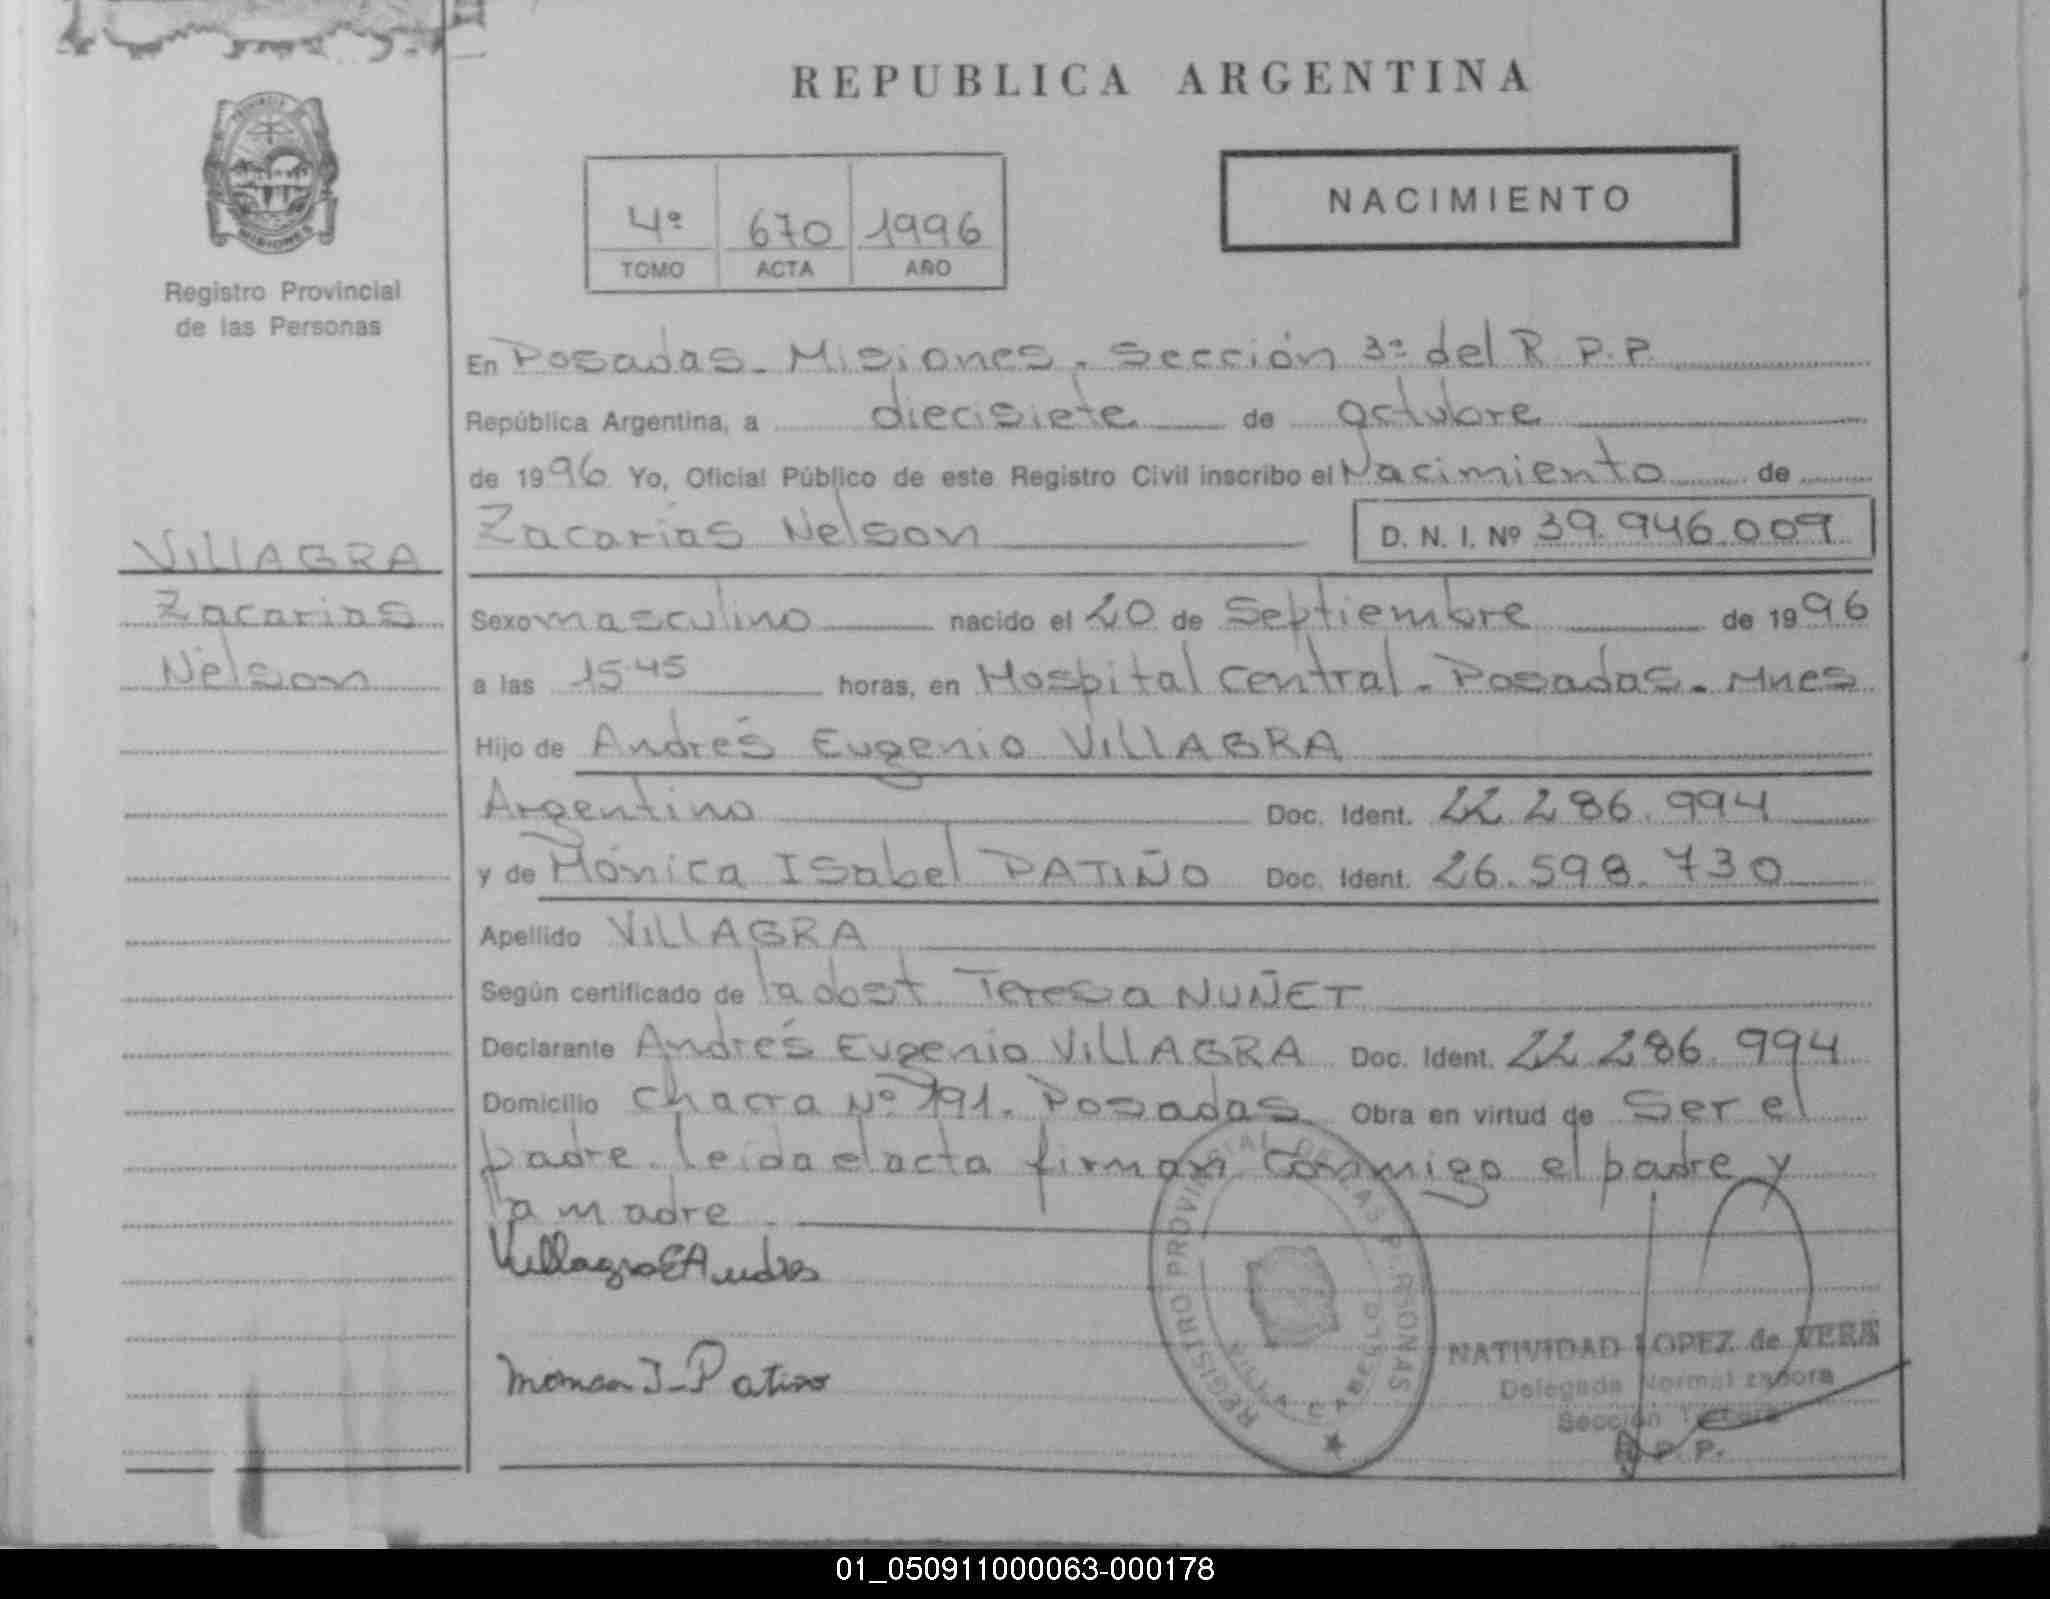 REPUBLICA ARGENTINA
MISIONES
Registro Provincial
de las Personas
4º 670 1996
TOMO ACTA AÑO
NACIMIENTO
En Posadas - Misiones - Sección 3ª del R P.P.
República Argentina, a diecisiete de octubre
de 1996 Yo, Oficial Público de este Registro Civil inscribo el Nacimiento de
Zacarías Nelson D. N. I. Nº 39.946.009
VIllAGRA
Zacarias
Nelson
Sexo masculino nacido el 20 de Septiembre de 1996
a las 15.45 horas, en Hospital Central - Posadas - Mnes
Hijo de Andrés Eugenio VIllAGRA
Argentino Doc. Ident. 22.286.994
y de Mónica Isabel PATIÑO Doc. Ident. 26.598.730
Apellido VIllAGRA
Según certificado de la obst. Teresa NUÑET
Declarante Andrés Eugenio VIllAGRA Doc. Ident. 22.286.994
Domicilio Chacra Nº 191. Posadas Obra en virtud de Ser el
padre. leida el acta firman conmigo el padre y
la madre
Villagra E Andres
I. Patiño
REGISTRO PROVINCIAL DE LAS PERSONAS
VILLA CABELLO
NATIVIDAD LOPEZ de VERA
Delegada Normalizadora
Sección Tercera
R. P. P.
01_050911000063-000178